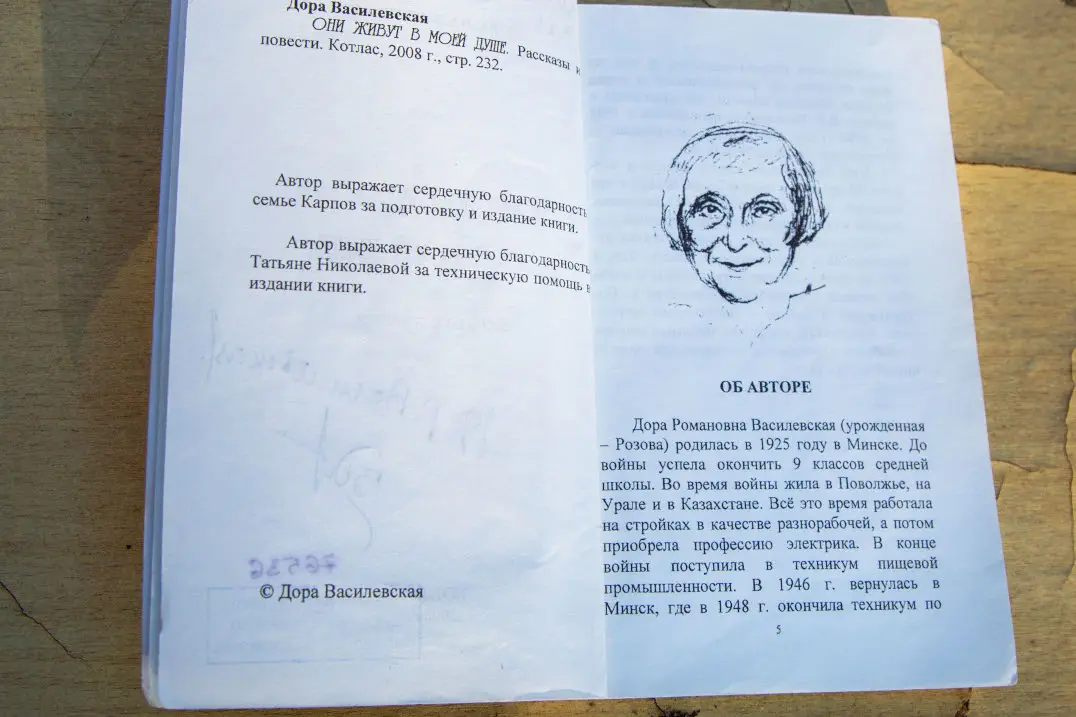 Дора Василевская
ОНИ ЖИВУТ В МОЕЙ ДУШЕ. Рассказы и
повести. Котлас, 2008 г., стр. 232.
Автор выражает сердечную благодарность
семье Карпов за подготовку и издание книги.
Автор выражает сердечную благодарность
Татьяне Николаевой за техническую помощь в
издании книги.
© Дора Василевская
ОБ АВТОРЕ
Дора Романовна Василевская (урожденная
– Розова) родилась в 1925 году в Минске. До
войны успела окончить 9 классов средней
школы. Во время войны жила в Поволжье, на
Урале и в Казахстане. Всё это время работала
на стройках в качестве разнорабочей, а потом
приобрела профессию электрика. В конце
войны поступила в техникум пищевой
промышленности. В 1946 г. вернулась в
Минск, где в 1948 г. окончила техникум по
5